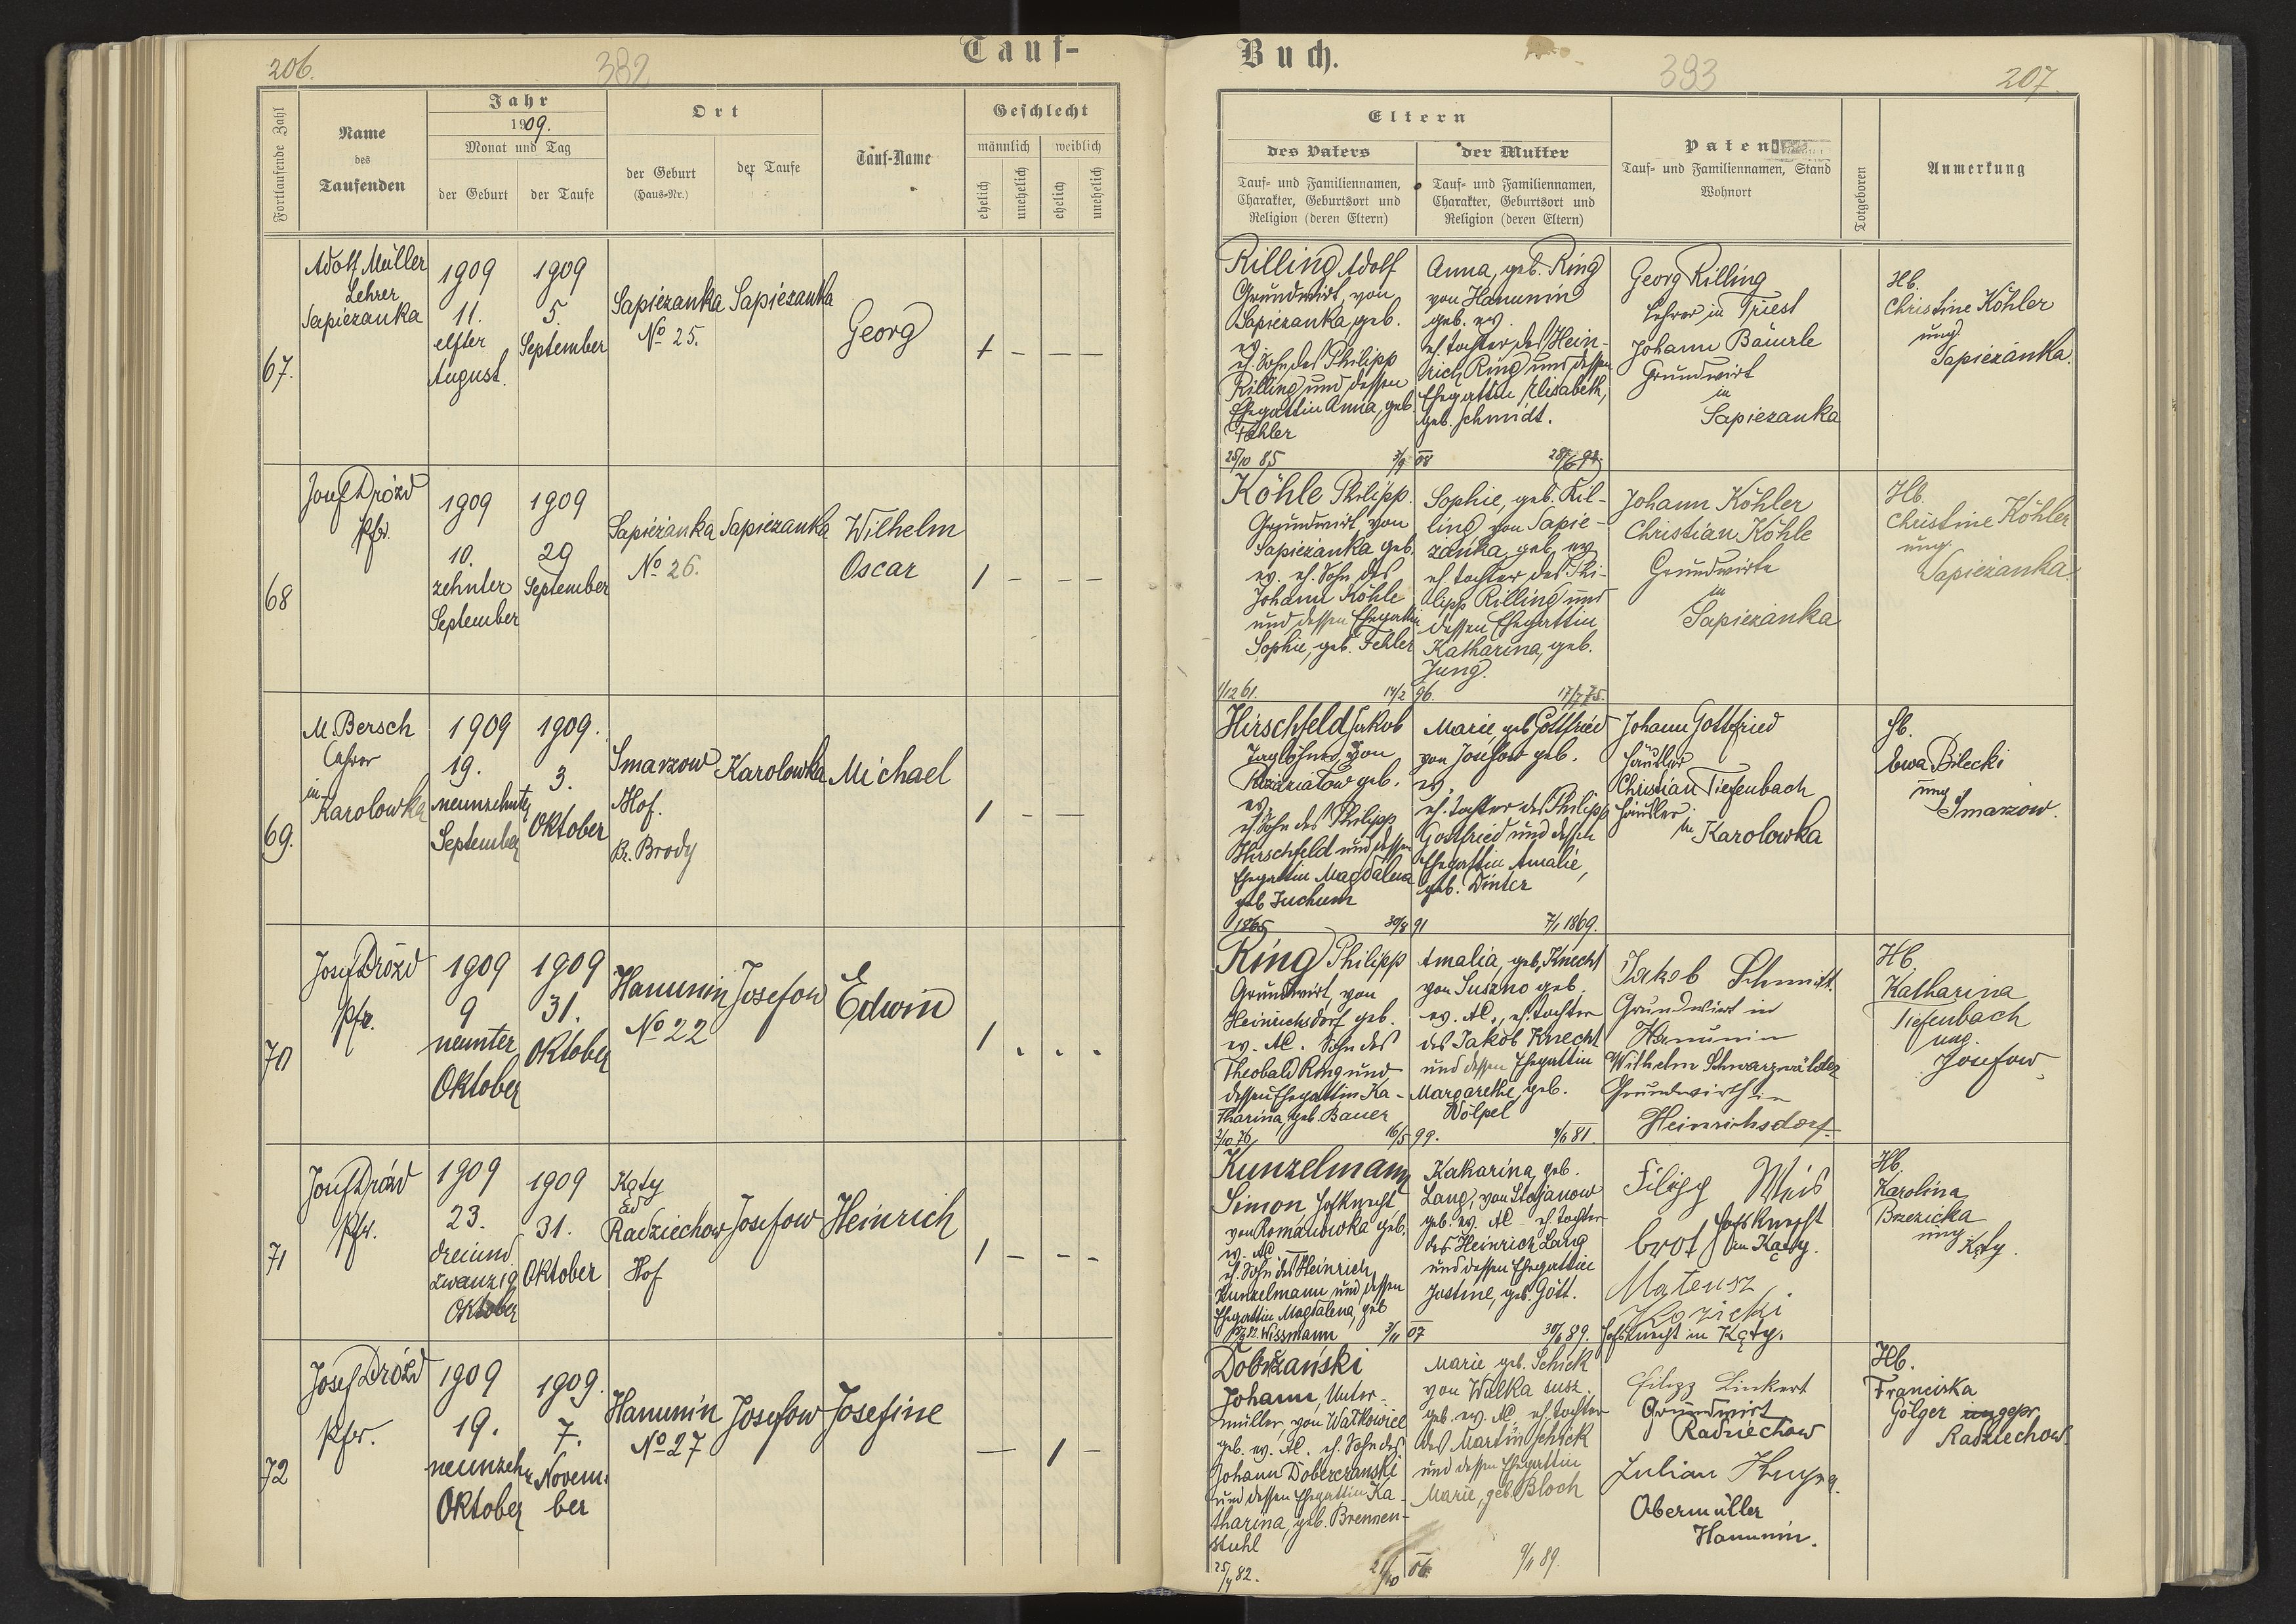 206.
382
Tauf-
Fortlaufende Zahl
Name
des
Taufenden
Jahr
1909.
Monat und Tag
der Geburt
der Taufe
Ort
der Geburt
(Haus-Nr.)
der Taufe
Tauf-Name
Geschlecht
männlich
weiblich
ehelich
unehelich
ehelich
unehelich
67.
Adolf Müller
Lehrer
Sapiezanka
1909
11.
elfter
August.
1909
5.
September
Sapiezanka
No 25.
Sapiezanka
Georg
1 – – –
68
Josef Drózd
Pfr.
1909
10.
zehnter
September
1909
29
September
Sapiezanka
No 26.
Sapiezanka
Wilhelm
Oscar
1 – – –
69.
M. Bersch
Lehrer
in
Karolowka
1909
19.
neunzehnter
September
1909.
3.
Oktober
Smarzow
Hof.
Br. Brody
Karolowka
Michael
1 – – –
70
Josef Drózd
Pfr.
1909
9
neunter
Oktober
1909
31.
Oktober
Hanunin
No 22
Josefow
Edwin
1 . . .
71
Josef Drózd
Pfr.
1909
23.
dreiund
zwanzig
Oktober
1909
31.
Oktober
Kąty
ad
Radziechow
Hof
Josefow
Heinrich
1 – – –
72
Josef Drózd
Pfr.
1909
19.
neunzehn
Oktober
1909.
7.
Novem-
ber
Hanunin
No 27
Josefow
Josefine
— 1 –
Buch.
393
207
Eltern
des Vaters
Tauf- und Familiennamen,
Charakter, Geburtsort und
Religion (deren Eltern)
der Mutter
Tauf- und Familiennamen,
Charakter, Geburtsort und
Religion (deren Eltern)
Paten
Tauf- und Familiennamen, Stand
Wohnort
Totgeboren
Anmerkung
Rilling Adolf
Grundwirt, von
Sapiezanka, geb.
ev.
eh. Sohn des Philipp
Rilling und dessen
Ehegattin Anna, geb.
Fehler
25/10 85
Anna, geb. Ring
von Hanunin
geb. ev.
eh. Tochter des Hein-
rich Ring und dessen
Ehegattin Elisabeth,
geb. Schmidt.
3/9 08
Georg Rilling
Lehrer in Triest
Johann Bäuerle
Grundwirt
in
Sapiezanka
Hb.
Christine Köhler
ung.
Sapiezanka.
Köhle Philipp.
Grundwirt, von
Sapiezanka geb.
ev. eh. Sohn des
Johann Köhle
und dessen Ehegattin
Sophie, geb. Fehler
1/12 61.
Sophie, geb. Ril-
ling, von Sapie-
zanka, geb. ev.
eh. Tochter des Phi-
lipp Rilling und
dessen Ehegattin
Katharina, geb.
Jung.
14/2 96.
17/7 75.
Johann Köhler
Christian Köhle
Grundwirte
in
Sapiezanka
Hb.
Christine Köhler
ung.
Sapiezanka.
Hirschfeld Jakob
Taglöhner, von
geb.
ev.
eh. Sohn des Philipp
Hirschfeld und dessen
Ehegattin Magdalena
geb. Juchum
1865
Marie, geb. Gottfried
von Josefow geb.
ev.
eh. Tochter des Philipp
Gottfried und dessen
Ehegattin Amalie,
geb. Winter
30/8 91
7/1 1869.
Johann Gottfried
Häusler
Christian Tiefenbach
Häusler
in Karolowka
Hb.
Ewa Bilecki
ung.
Smarzow.
Ring Philipp
Grundwirt, von
Heinrichsdorf geb.
ev. AC. Sohn des
Theobald Ring und
dessen Ehegattin Ka-
tharina, geb. Bauer
2/10 76
Amalia, geb. Knecht
von Suszno geb.
ev. AC., eh. Tochter
des Jakob Knecht
und dessen Ehegattin
Margarethe, geb.
Wölpel
16/5 99.
4/6 81.
Jakob Schmidt.
Grundwirt in
Hanunin
Wilhelm Schwarzwälder
Grundwirth in
Heinrichsdorf
Hb.
Katharina
Tiefenbach
ung.
Josefow.
Kunzelmann
Simon Hofknecht
von Romanowka geb.
ev. AC
eh. Sohn des Heinrich
Kunzelmann und dessen
Ehegattin Magdalena, geb
Wissmann
Katharina, geb.
Lang, von Stojanow
geb. ev. AC eh. Tochter
des Heinrich Lang
und dessen Ehegattin
Justine, geb. Gött.
3/11 07
30/6 89.
Filipp Weis
brot Hofsknecht
in Kąty.
Mateusz
Kozicki
Hofsknecht in Kąty.
Hb.
Karolina
Brzezicka
ung.
Kąty.
Dobrzański
Johann, Unter-
müller, von Watkowice
geb. ev. AC. eh. Sohn des
Johann Doberczanski
und dessen Ehegattin Ka-
tharina, geb. Brennen-
stuhl
25/4 82.
Marie geb. Schick
von Wulka susz.
geb. ev. AC. eh. Tochter
des Martin Schick
und dessen Ehegattin
Marie, geb. Bloch
21/10 06.
9/11 89.
Filipp Linkert
Grundwirt
Radziechow
Julian
Obermüller
Hanunin.
Hb.
Franciska
Gölger
Radziechow.